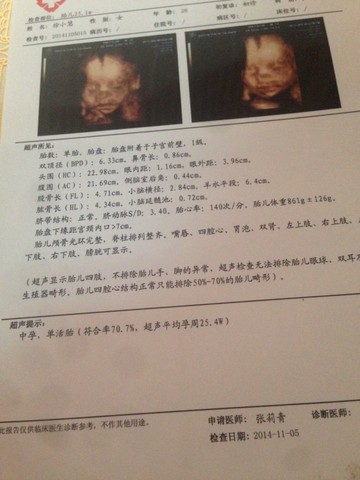 检查部位:
姓 名: 徐小昆 性 别: 女 年 龄: 26 初复诊: 初诊
检查号: 20141108015 病历号: / 住院号: / 病区号: / 病床号: /
超声所见:
胎数: 单胎, 胎盘: 胎盘附着于子宫前壁, 1级。
双顶径(BPD): 6.33cm, 鼻骨长: 0.86cm,
头围(HC): 22.98cm, 眼内距: 1.16cm, 眼外距: 3.96cm,
腹围(AC): 21.69cm, 侧脑室后角: 0.44cm,
股骨长(FL): 4.71cm, 小脑横径: 2.84cm, 羊水平段: 6.4cm,
肱骨长(HL): 4.34cm, 小脑延髓池: 0.72cm,
脐带结构: 正常, 脐动脉S/D: 3.40, 胎心率: 140次/分, 胎儿体重861g±126g,
胎盘下缘距宫颈内口>7cm。
胎儿颅骨光环完整, 脊柱排列整齐, 嘴唇、四腔心、胃泡、双肾、左上肢、右上肢、
下肢、右下肢、膀胱可显示。
(超声显示胎儿四肢, 不排除胎儿手、脚的异常, 超声检查无法排除胎儿眼球、双耳
生殖器畸形, 胎儿四腔心结构正常只能排除50%-70%的胎儿畸形)。
超声提示:
中孕, 单活胎 (符合率70.7%, 超声平均孕周25.4W)
此报告仅供临床医生诊断参考, 不作其他用途。
申请医师: 张莉青 诊断医师:
检查日期: 2014-11-05